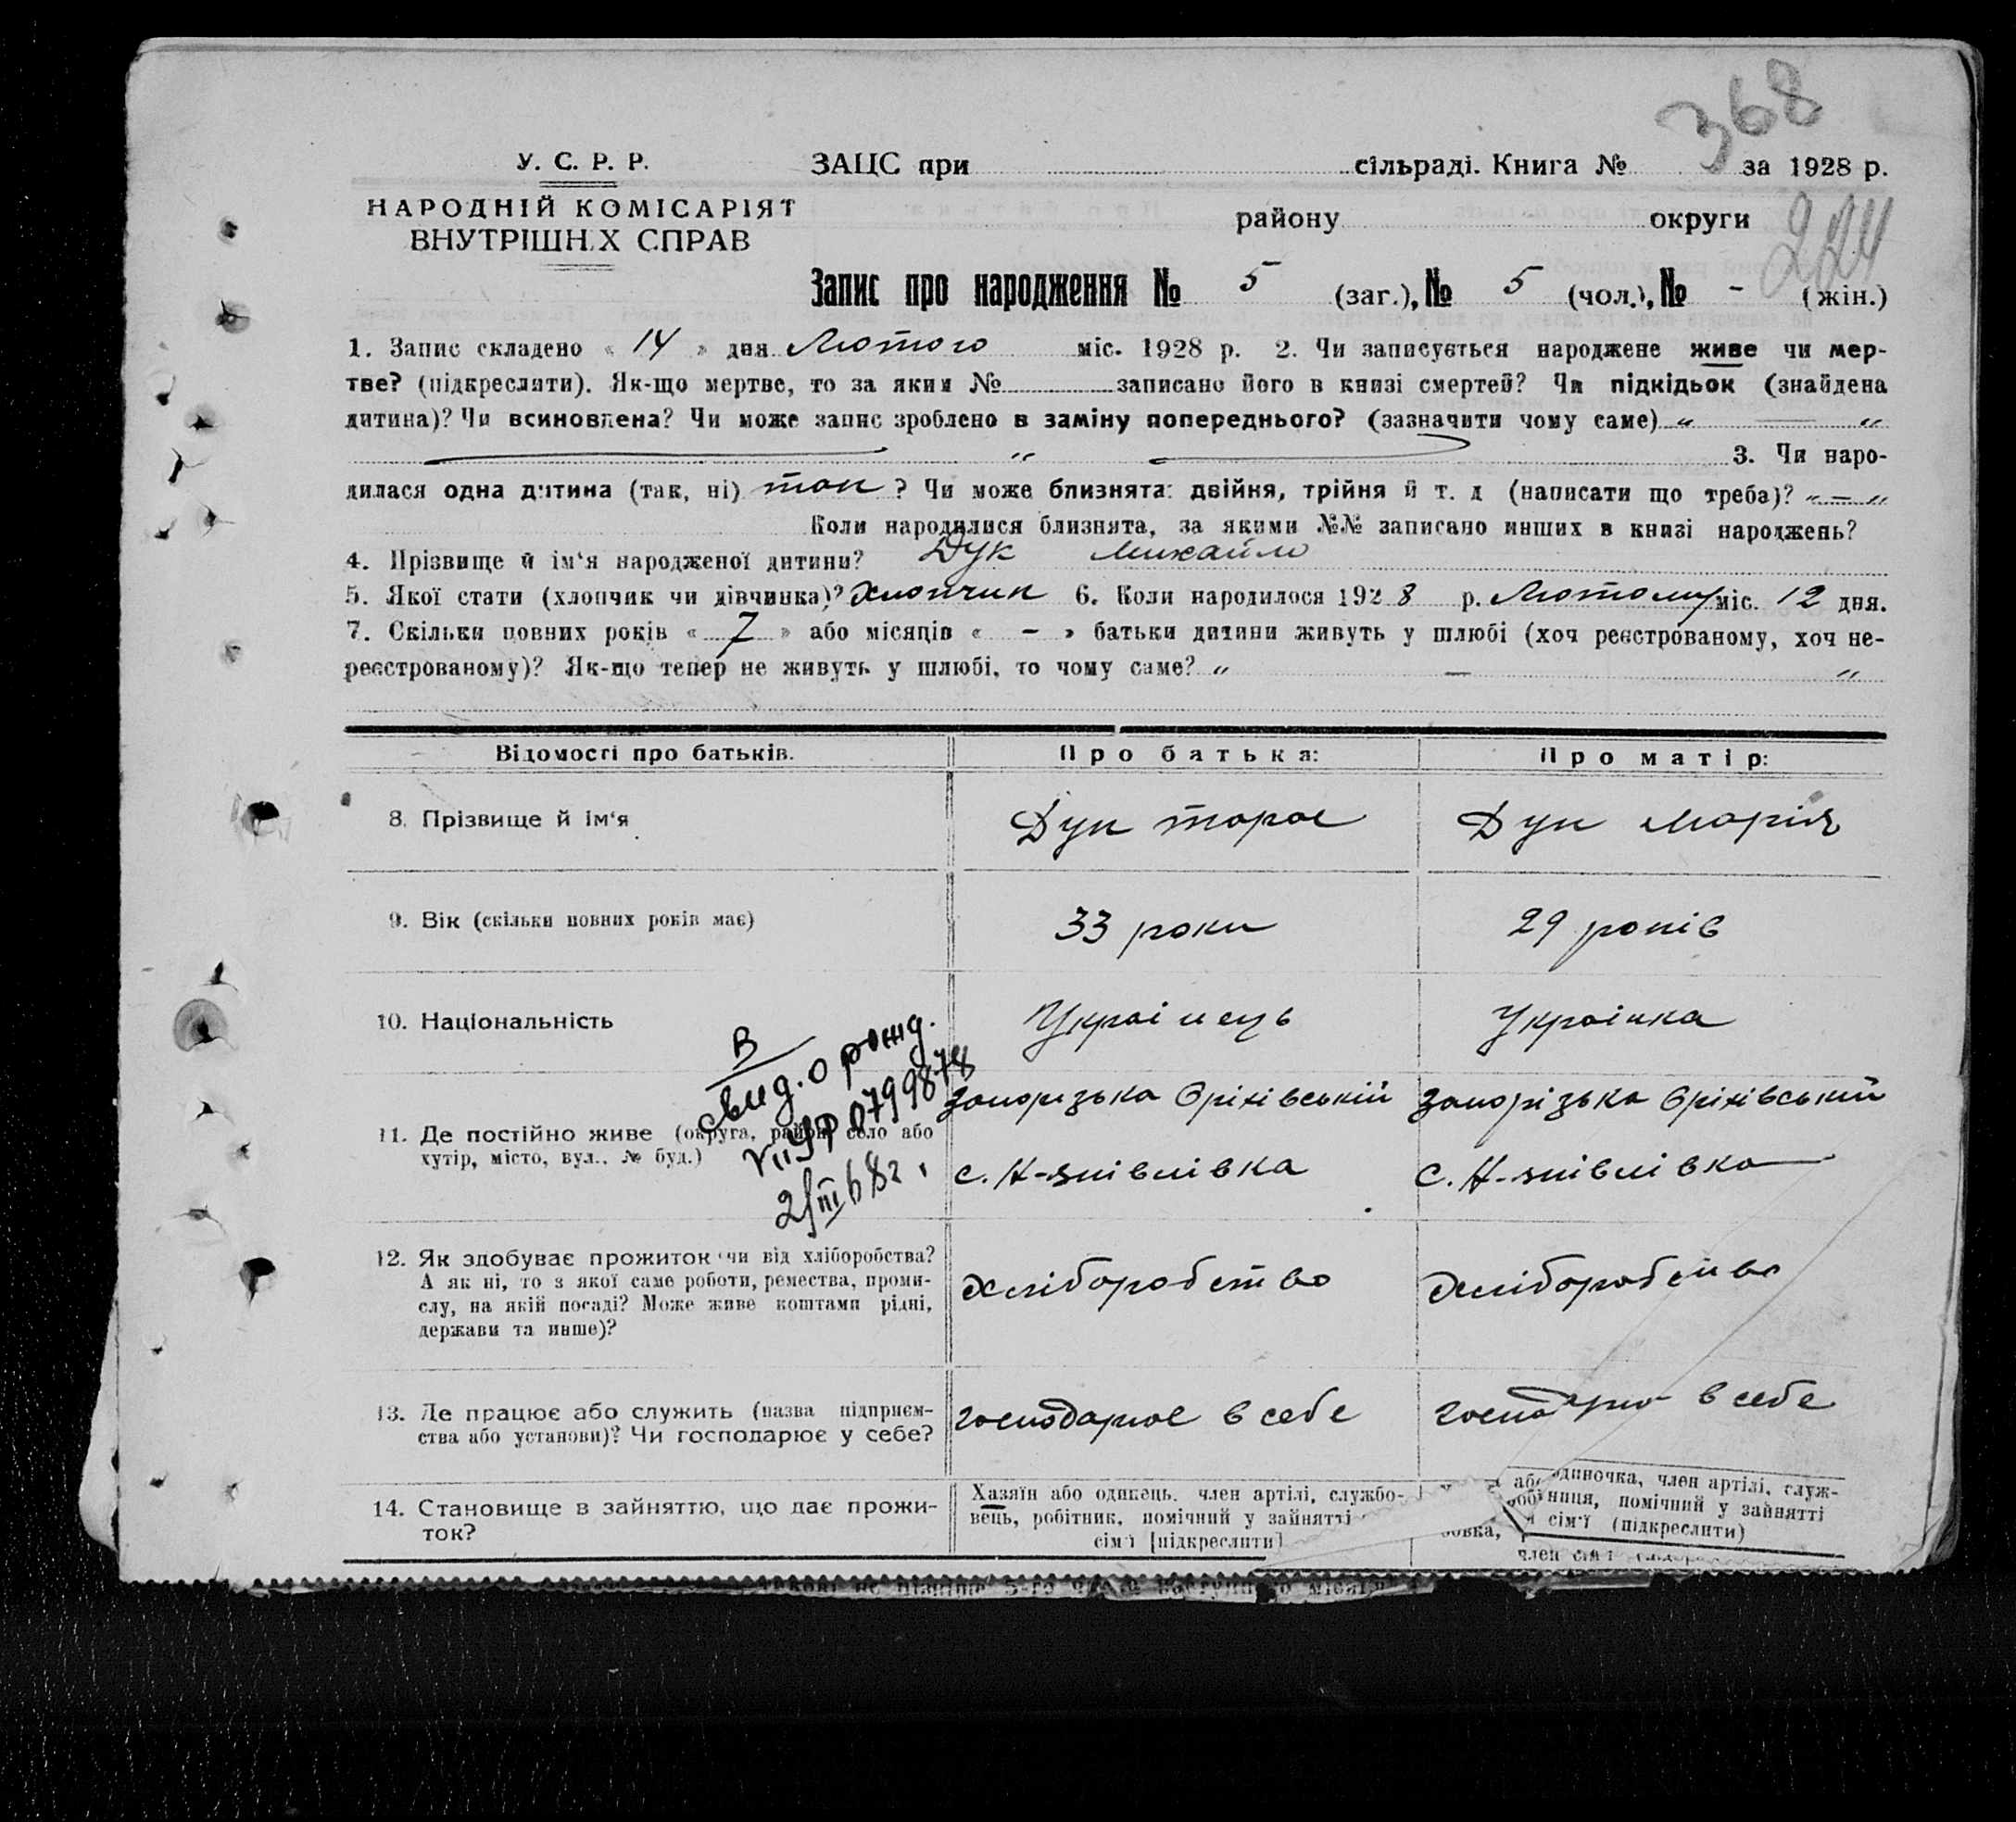 368
У. С. Р. Р.
ЗАЦС при сільраді. Книга № за 1928 р.
НАРОДНІЙ КОМІСАРІЯТ
ВНУТРІШНІХ СПРАВ
району округи
224
Запис про народження № 5 (заг.), № 5 (чол.), № - (жін.)
1. Запис складено « 14 » дня Лютого міс. 1928 р. 2. Чи записується народжене живе чи мер-
тве? (підкреслити). Як-що мертве, то за яким № записано його в книзі смертей? Чи підкідьок (знайдена
дитина)? Чи всиновлена? Чи може запис зроблено в заміну попереднього? (зазначити чому саме) „ — „
„ 3. Чи наро-
дилася одна дитина (так, ні) так ? Чи може близнята: двійня, трійня й т. д (написати що треба)? „ — „
Коли народилися близнята, за якими №№ записано инших в книзі народжень?
4. Прізвище й ім‘я народженої дитини? Дук Михайло
5. Якої стати (хлопчик чи дівчинка)? Хлопчик 6. Коли народилося 1928 р. Лютому міс. 12 дня.
7. Скільки повних років « 7 » або місяців « - » батьки дитини живуть у шлюбі (хоч реєстрованому, хоч не-
реєстрованому)? Як-що тепер не живуть у шлюбі, то чому саме? „ — „
Відомості про батьків. Про батька: Про матір:
8. Прізвище й ім‘я Дук Тарас Дук Марія
9. Вік (скільки повних років має) 33 роки 29 років
10. Національність Українець Українка
В
свид. о рожд.
VII УР 0799878
21/III 68 г.
11. Де постійно живе (округа, район, село або
хутір, місто, вул., № буд.)
Запорізька Оріхівський Запорізька Оріхівський
с. Н-Янівлівка с. Н-Янівлівка
12. Як здобуває прожиток (чи від хліборобства?
А як ні, то з якої саме роботи, ремества, проми-
слу, на якій посаді? Може живе коштами рідні,
держави та инше)?
Хліборобство Хліборобство
13. Де працює або служить (назва підприєм-
ства або установи)? Чи господарює у себе?
господарює в себе господарює в себе
14. Становище в зайняттю, що дає прожи-
ток?
Хазяїн або одинець, член артілі, службо-
вець, робітник, помічний у зайнятті
сім‘ї [підкреслити]
або одиночка, член артілі, служ-
ниця, помічний у зайнятті
сім‘ї (підкреслити)